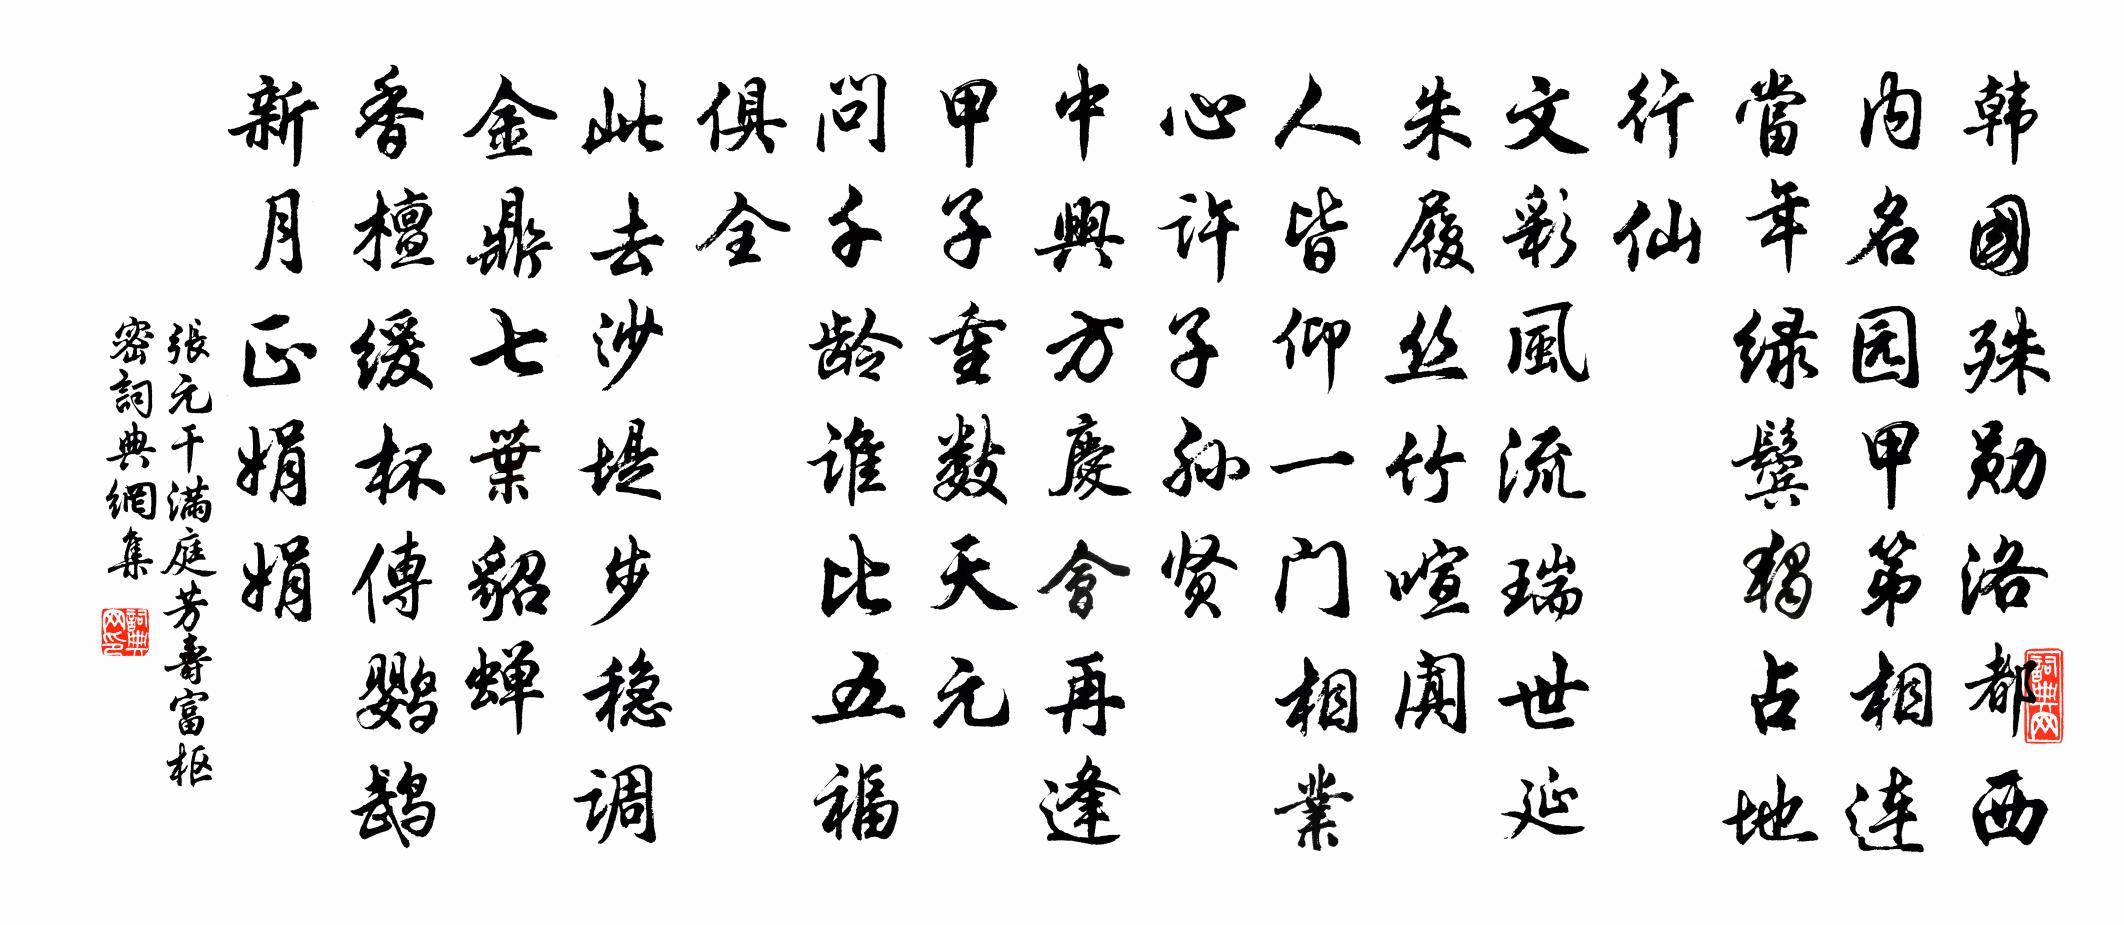 韩國殊勋洛都西
内名园甲第相连
當年绿鬓独占地
行仙
文彩風流瑞世延
朱履丝竹喧阗
人皆仰一门相業
心许子孙贤
中興方慶會再逢
甲子重数天元
問千龄谁比五福
俱全
此去沙堤步稳调
金鼎七葉貂蝉
香檀缓杯傳鹦鹉
新月正娟娟
張元干满庭芳壽富枢
密詞典網集
詞典网
詞典网印